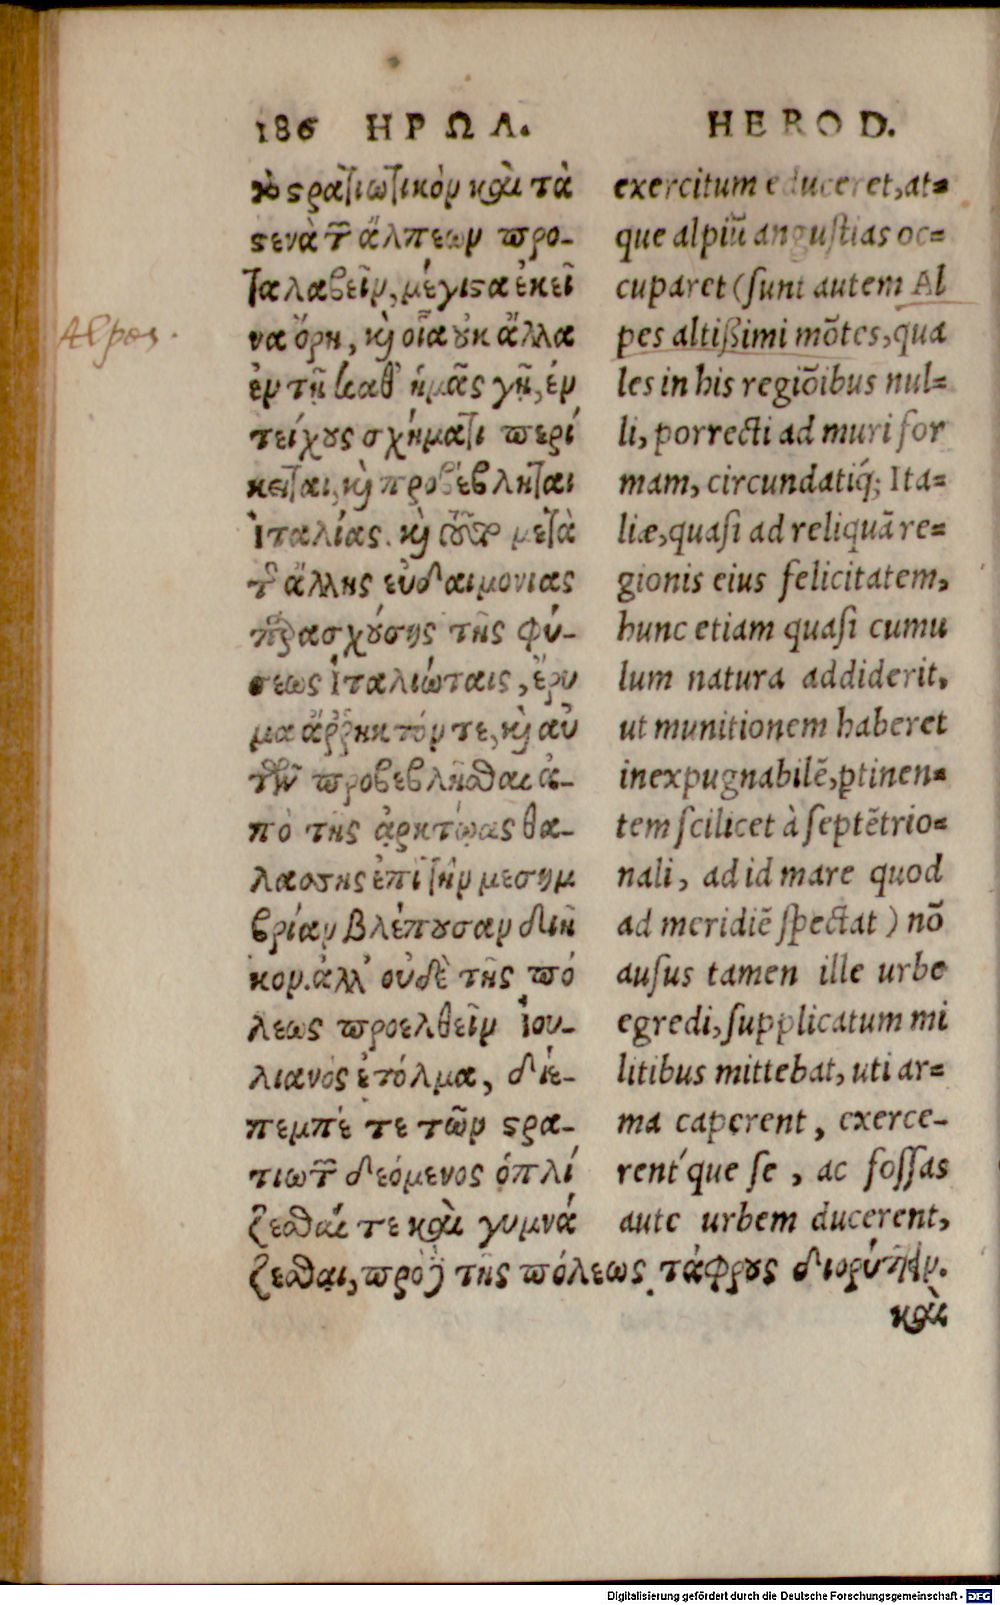 186 ΗΡΩΔ.
τὸ ϛρατιωτικὸν καὶ τὰ
ϛενὰ τῶν ἄλπεων προ-
ταλαβεῖν, μέγιϛα ἐκεῖ
να ὄρη, κὶ οἷα ȣκ ἄλλα
ἐν τῇ καθ' ἡμᾶς γῇ, ἐν
τείχȣς σχήματι περί
κειται, κὶ προβέβληται
Ἰταλίας. κὶ τοῦτο μετὰ
τῆς ἄλλης εὐδαιμονιας
παρασχȣσης τῆς φύ-
σεως Ἰταλιώταις, ἔρυ
μα ἄῤῥηκτόν τε, κὶ αὐ
τῶν προβεβλῆσθαι ἀ-
πὸ τῆς ἀρκτώας θα-
λασσης ἐπὶ τὴν μεσημ
βρίαν βλέπȣσαν διῆ
κον. ἀλλ' οὐδὲ τῆς πό
λεως προελθεῖν Ἰου-
λιανὸς ἐτόλμα, διέ-
πεμπέ τε τῶν ϛρα-
τιωτῶν δεόμενος ὁπλί
ζεσθαί τε καὶ γυμνά
ζεσθαι, πρὸ τῆς πόλεως τάφρȣς διορύττειν.
καὶ
HEROD.
exercitum educeret, at=
que alpiũ angustias oc=
cuparet (sunt autem Al
pes altißimi mõtes, qua
les in his regiõibus nul=
li, porrecti ad muri for
mam, circundatiq́; Ita=
liæ, quasi ad reliquã re=
gionis eius felicitatem,
hunc etiam quasi cumu
lum natura addiderit,
ut munitionem haberet
inexpugnabilẽ, ꝑtinen=
tem scilicet à septẽtrio=
nali, ad id mare quod
ad meridiẽ spectat) nõ
ausus tamen ille urbe
egredi, supplicatum mi
litibus mittebat, uti ar=
ma caperent, exerce-
rent'que se, ac fossas
ante urbem ducerent,
Alpes.
Digitalisierung gefördert durch die Deutsche Forschungsgemeinschaft - DFG